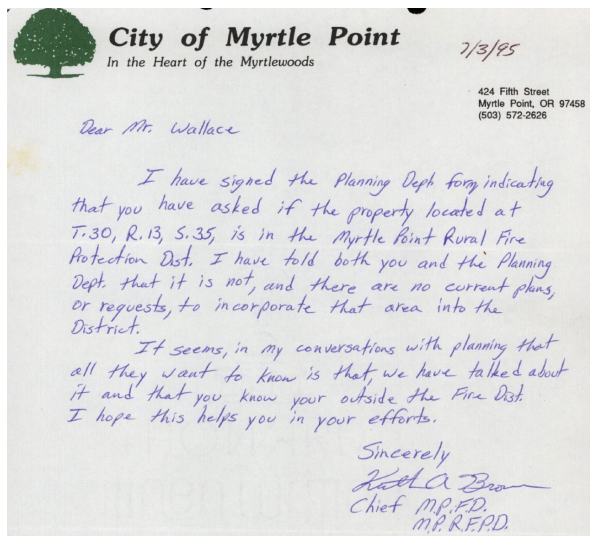 City of Myrtle Point
In the Heart of the Myrtlewoods
7/3/95
424 Fifth Street
Myrtle Point, OR 97458
(503) 572-2626
Dear Mr. Wallace
I have signed the Planning Dept. form, indicating
that you have asked if the property located at
T.30, R.13, S.35, is in the Myrtle Point Rural Fire
Protection Dist. I have told both you and the Planning
Dept. that it is not, and there are no current plans,
or requests, to incorporate that area into the
District.
It seems, in my conversations with planning that
all they want to know is that, we have talked about
it and that you know your outside the Fire Dist.
I hope this helps you in your efforts.
Sincerely
A Brown
Chief M.P.F.D.
M.P.R.F.P.D.